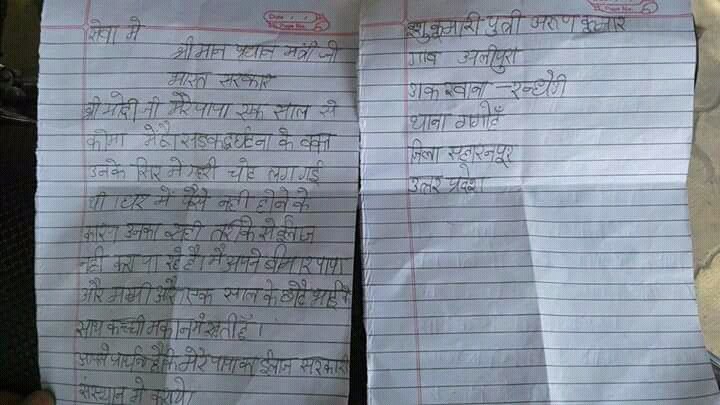 सेवा मे
श्री मान प्रधान मंत्री जी
भारत सरकार
श्री मोदी जी मेरे पापा एक साल से
कोमा मे है। सडक दुर्घटना के वक्त
उनके सिर मे गहरी चोट लग गई
थी। घर में पैसे नही होने के
कारण उनका सही तरीके से ईलाज
नही करा पा रहे है। मैं अपने बीमार पापा
और मम्मी और एक साल के छोटे भाई के
साथ कच्ची मकान में रहती हूँ।
आपसे प्रार्थना है कि मेरे पापा का ईलाज सरकारी
संस्थान मे कराये।
Date
Page No.
इशु कुमारी पुत्री अरुण कुमार
गाव अलीपुरा
डाक खाना - रन्धेरी
थाना गगोह
जिला सहारनपुर
उत्तर प्रदेश